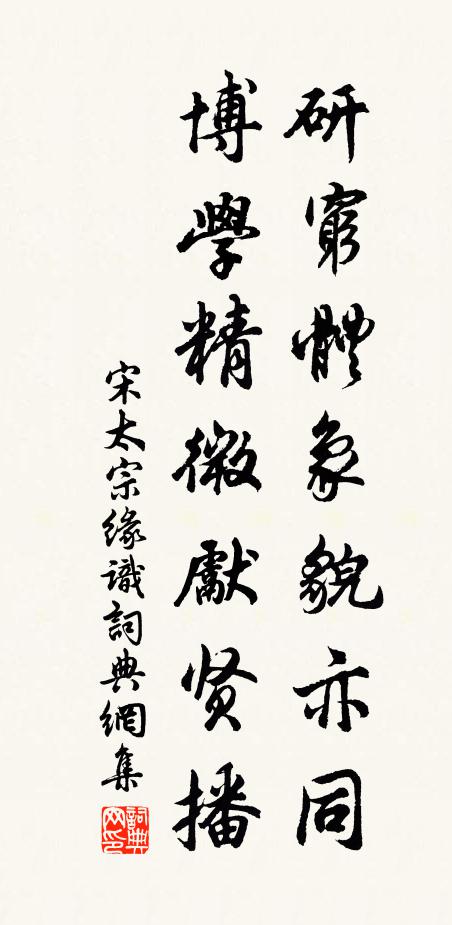 研窮體象貌亦同
博學精微獻贤播
宋太宗緣識詞典網集
詞典
网印